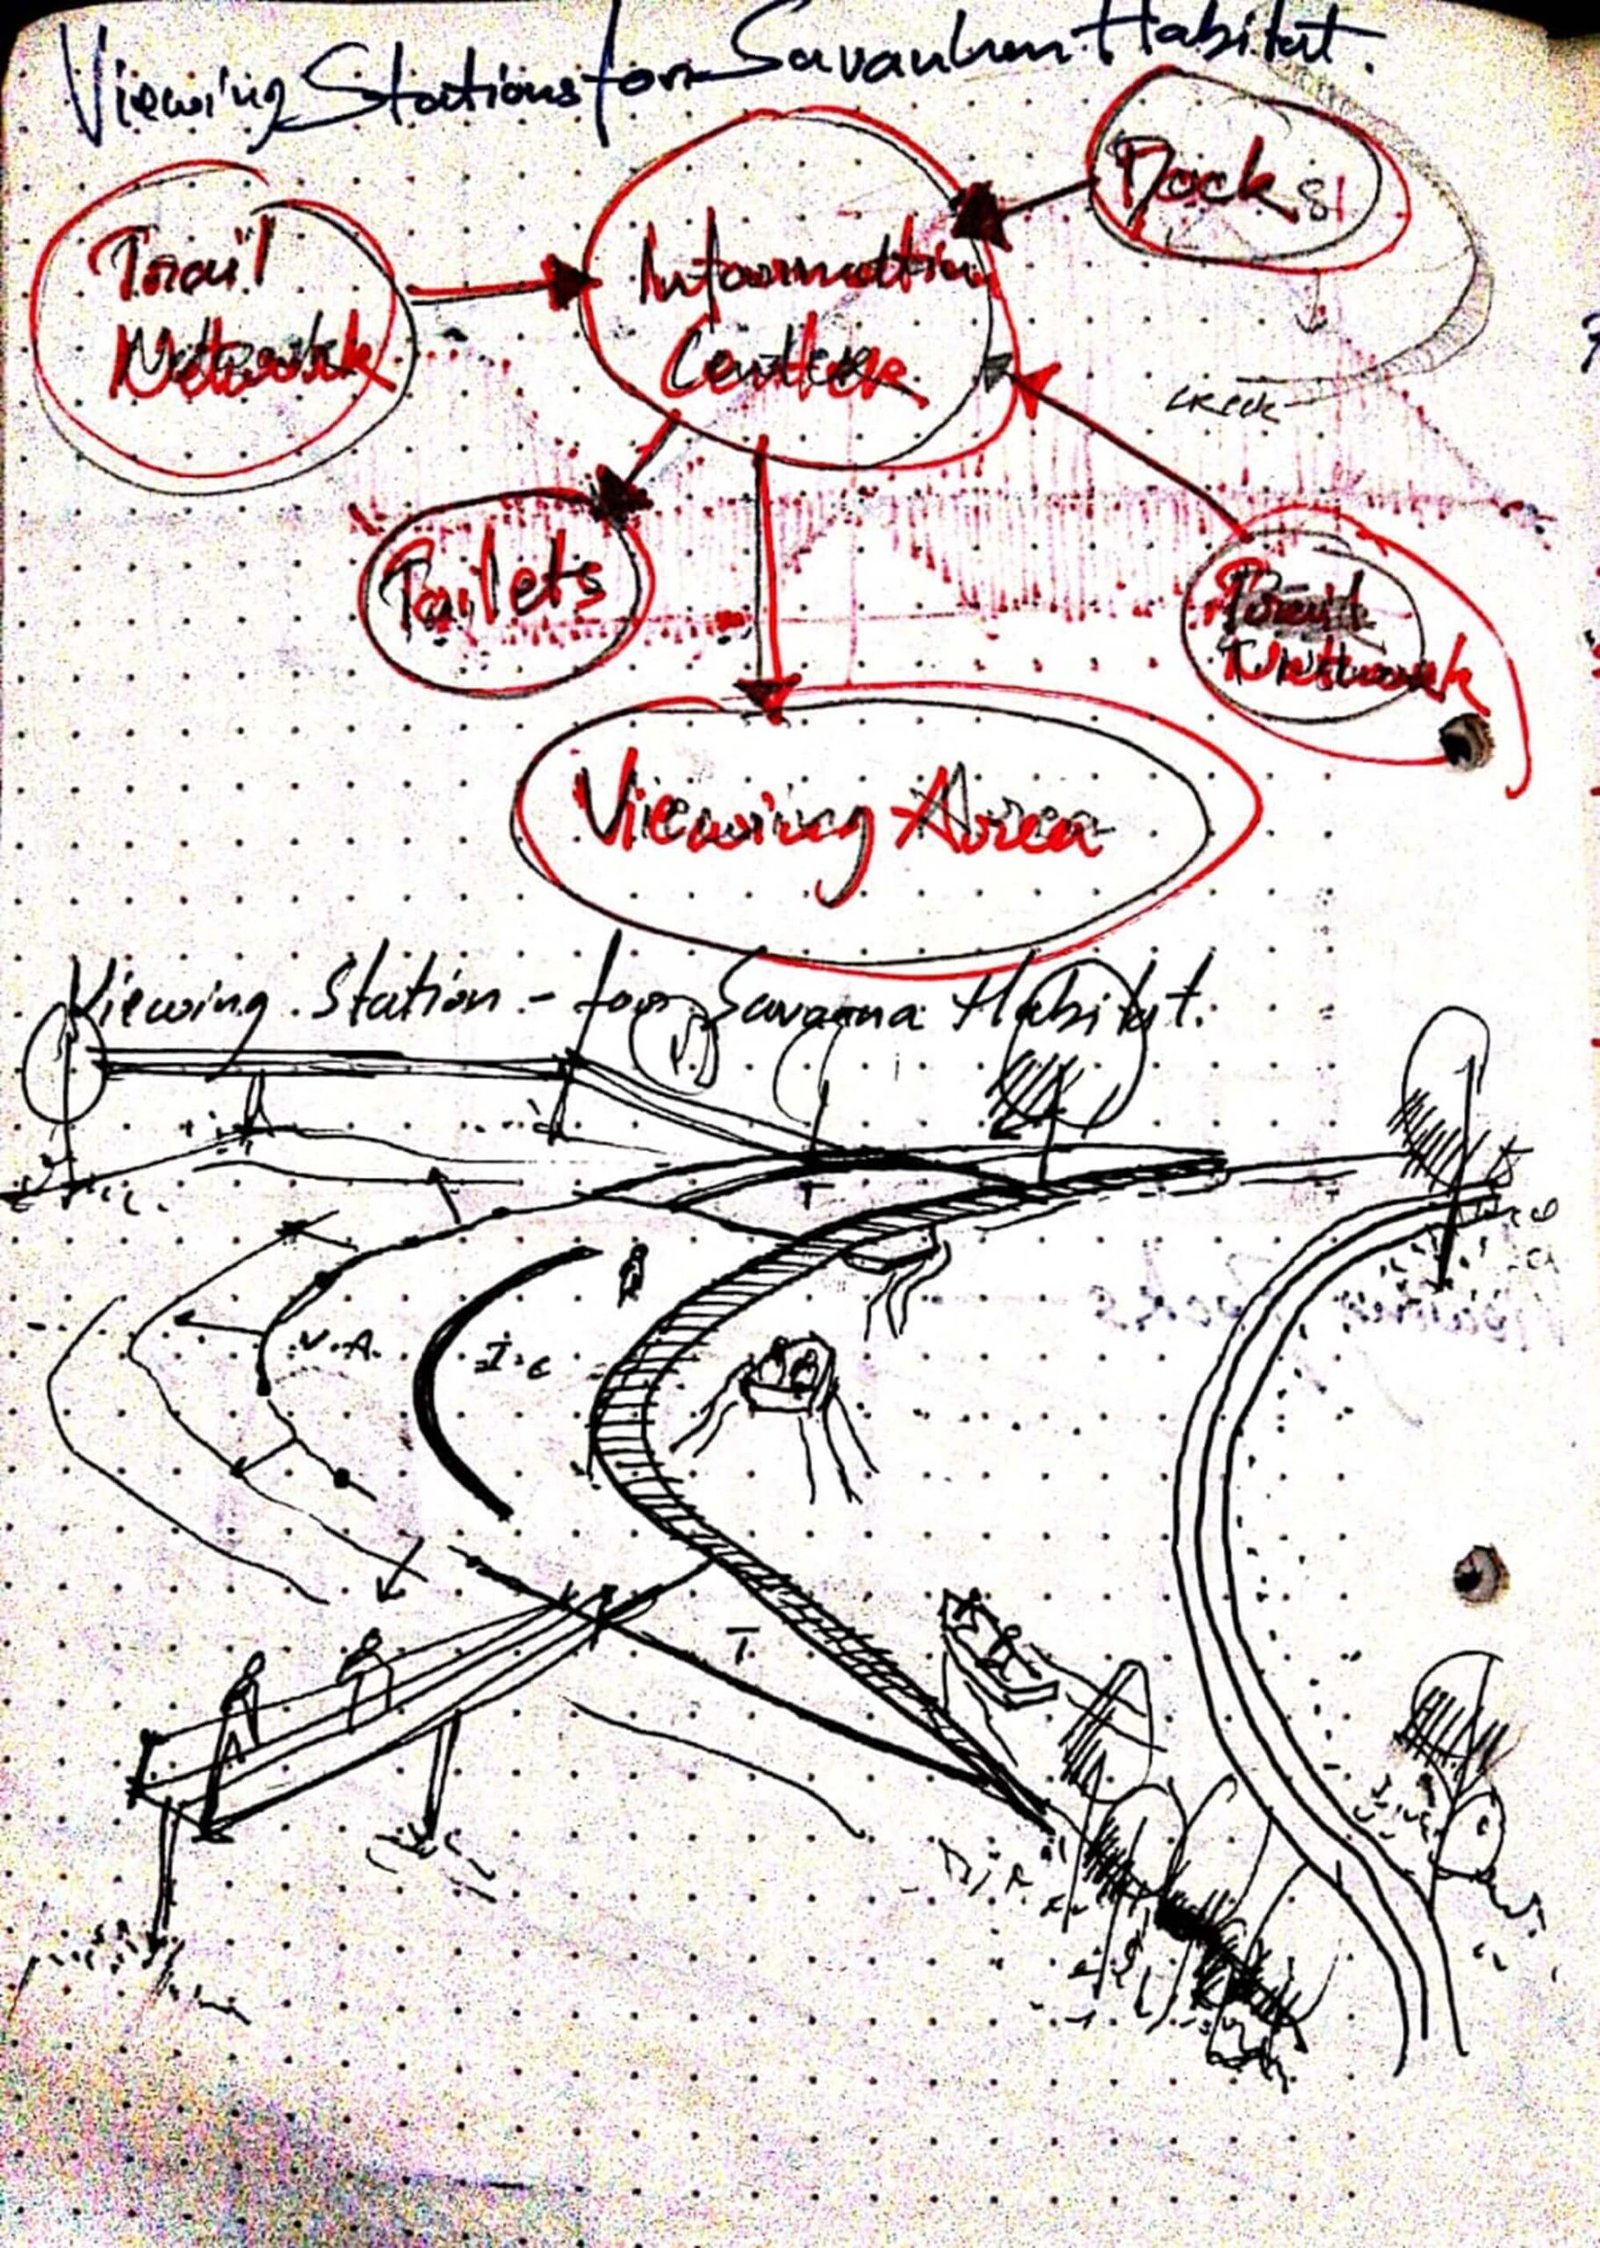 Viewing Stations for Savanhan Habitat.
Docks
Trail
Network
Information
Center
creek
Toilets
Trail
Network
Viewing Area
Viewing Station - for Savanna Habitat.
T
V.A.
I.C
T